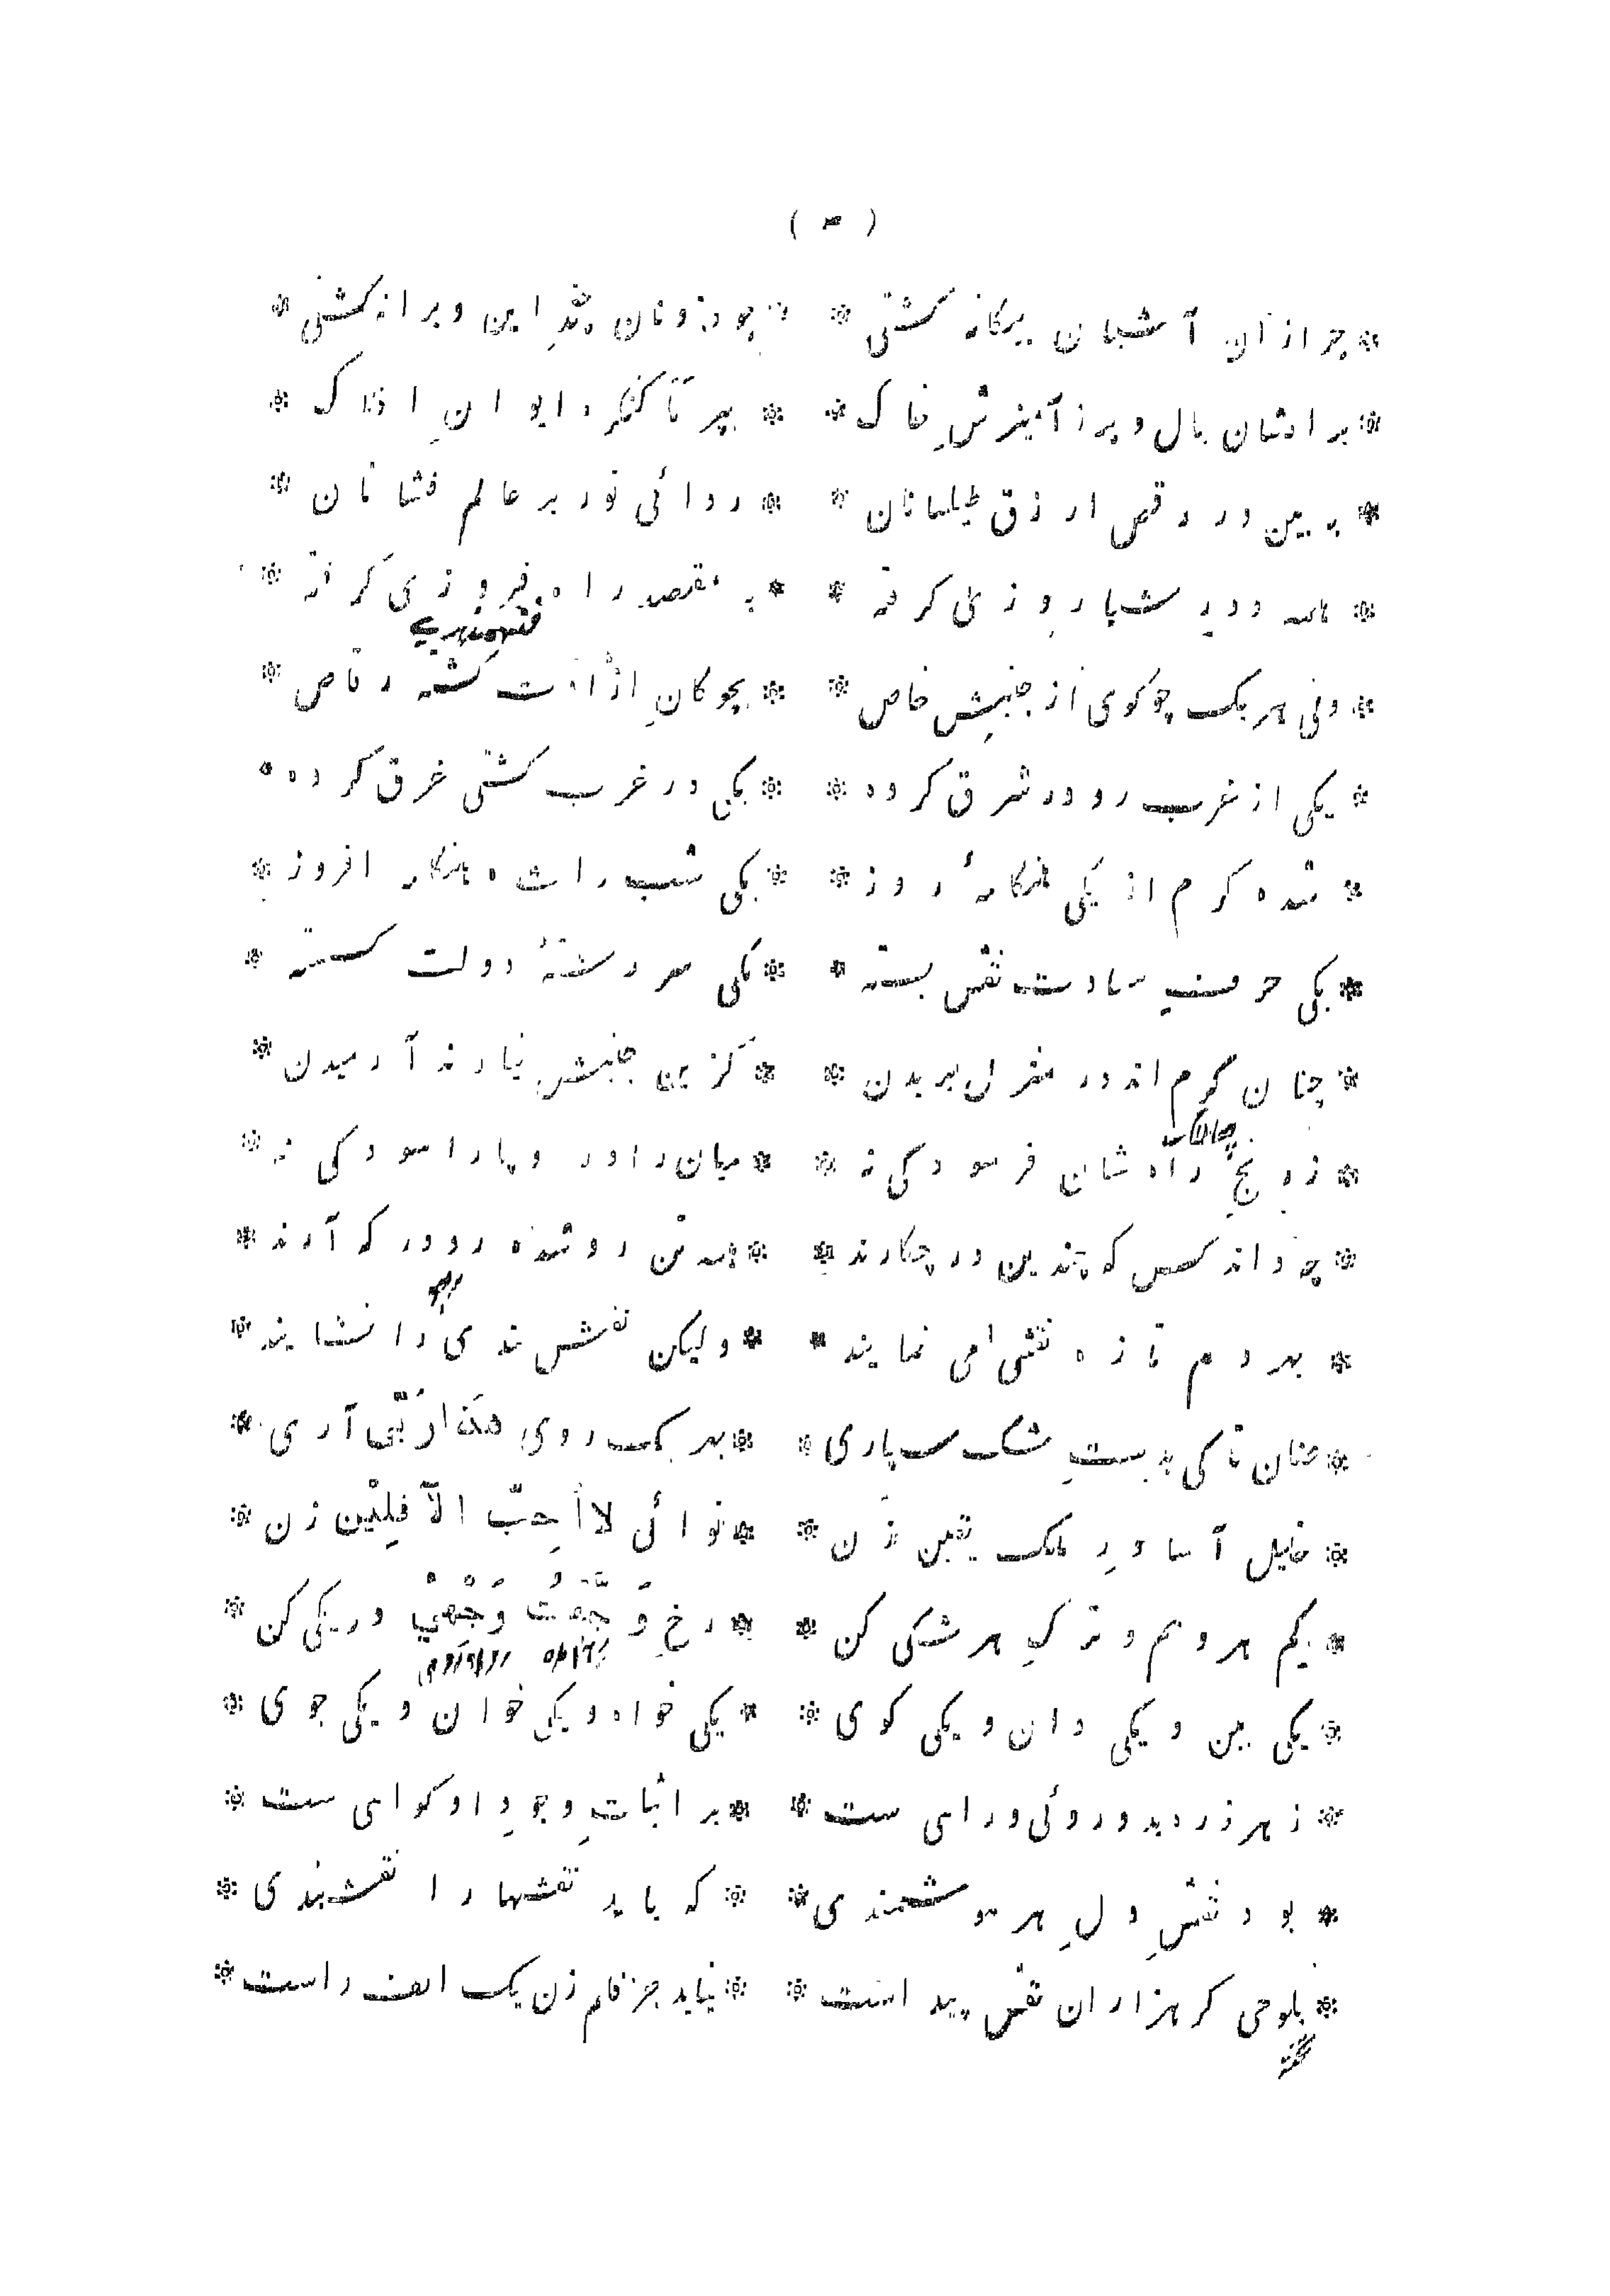 ( ۳ )
* چرا زان آشیان بیگانه کشتی * * چو دونان چغد این ویرانه کشتی *
* برافشان بال و پر ز آمیزشِ خاک * * بپر تا کنگره ایوانِ افلاک *
* به بین در رقص ارزق طیلسانان * * ردائی نور بر عالم فشانان *
* همه دورِ شبا روزی گرفته * * به مقصد راه فیروزی گرفته *
* ولی هر یک چو گوی از جنبشِ خاص * * بچوگانِ ارادت گشته رقاص *
* یکی از غرب رو در شرق کرده * * یکی در غرب کشتی غرق کرده *
* شده گرم از یکی هنگامهٔ روز * * یکی شب را شده هنگامه افروز *
* یکی حرفِ سعادت نقش بسته * * یکی سر رشتهٔ دولت گسسته *
* چنان گرم اند در منزل بریدن * * کزین جنبش نیارند آرمیدن *
* ز رنجِ راه شان فرسودگی نه * * میان را و پا را سودگی نه *
* چه داند کس که چندین در چکارند * * همه تن رو شده رو در که آرند *
* بهر دم تازه نقشی می نمایند * * ولیکن نقش بندی را نشایند *
* عنان تا کی بدستِ شک سپاری * * بهر یک روی هَذا رَبّی آری *
* خلیل آسا درِ ملک یقین زن * * نوائی لا أُحِبّ الآفِلِیْن زن *
* کم هر وهم و ترکِ هر شکی کن * * رخِ وَجَّهْتُ وَجْهِيْ در یکی کن *
* یکی بین و یکی دان و یکی گوی * * یکی خواه و یکی خوان و یکی جوی *
* ز هر ذره بدو روئی و راهی ست * * بر اثباتِ وجودِ او گواهی ست *
* بود نقشِ دلِ هر هوشمندی * * که باید نقشها را نقشبندی *
* بلوحی گر هزاران نقش پیداست * * نیاید جز قلم زن یک الف راست *